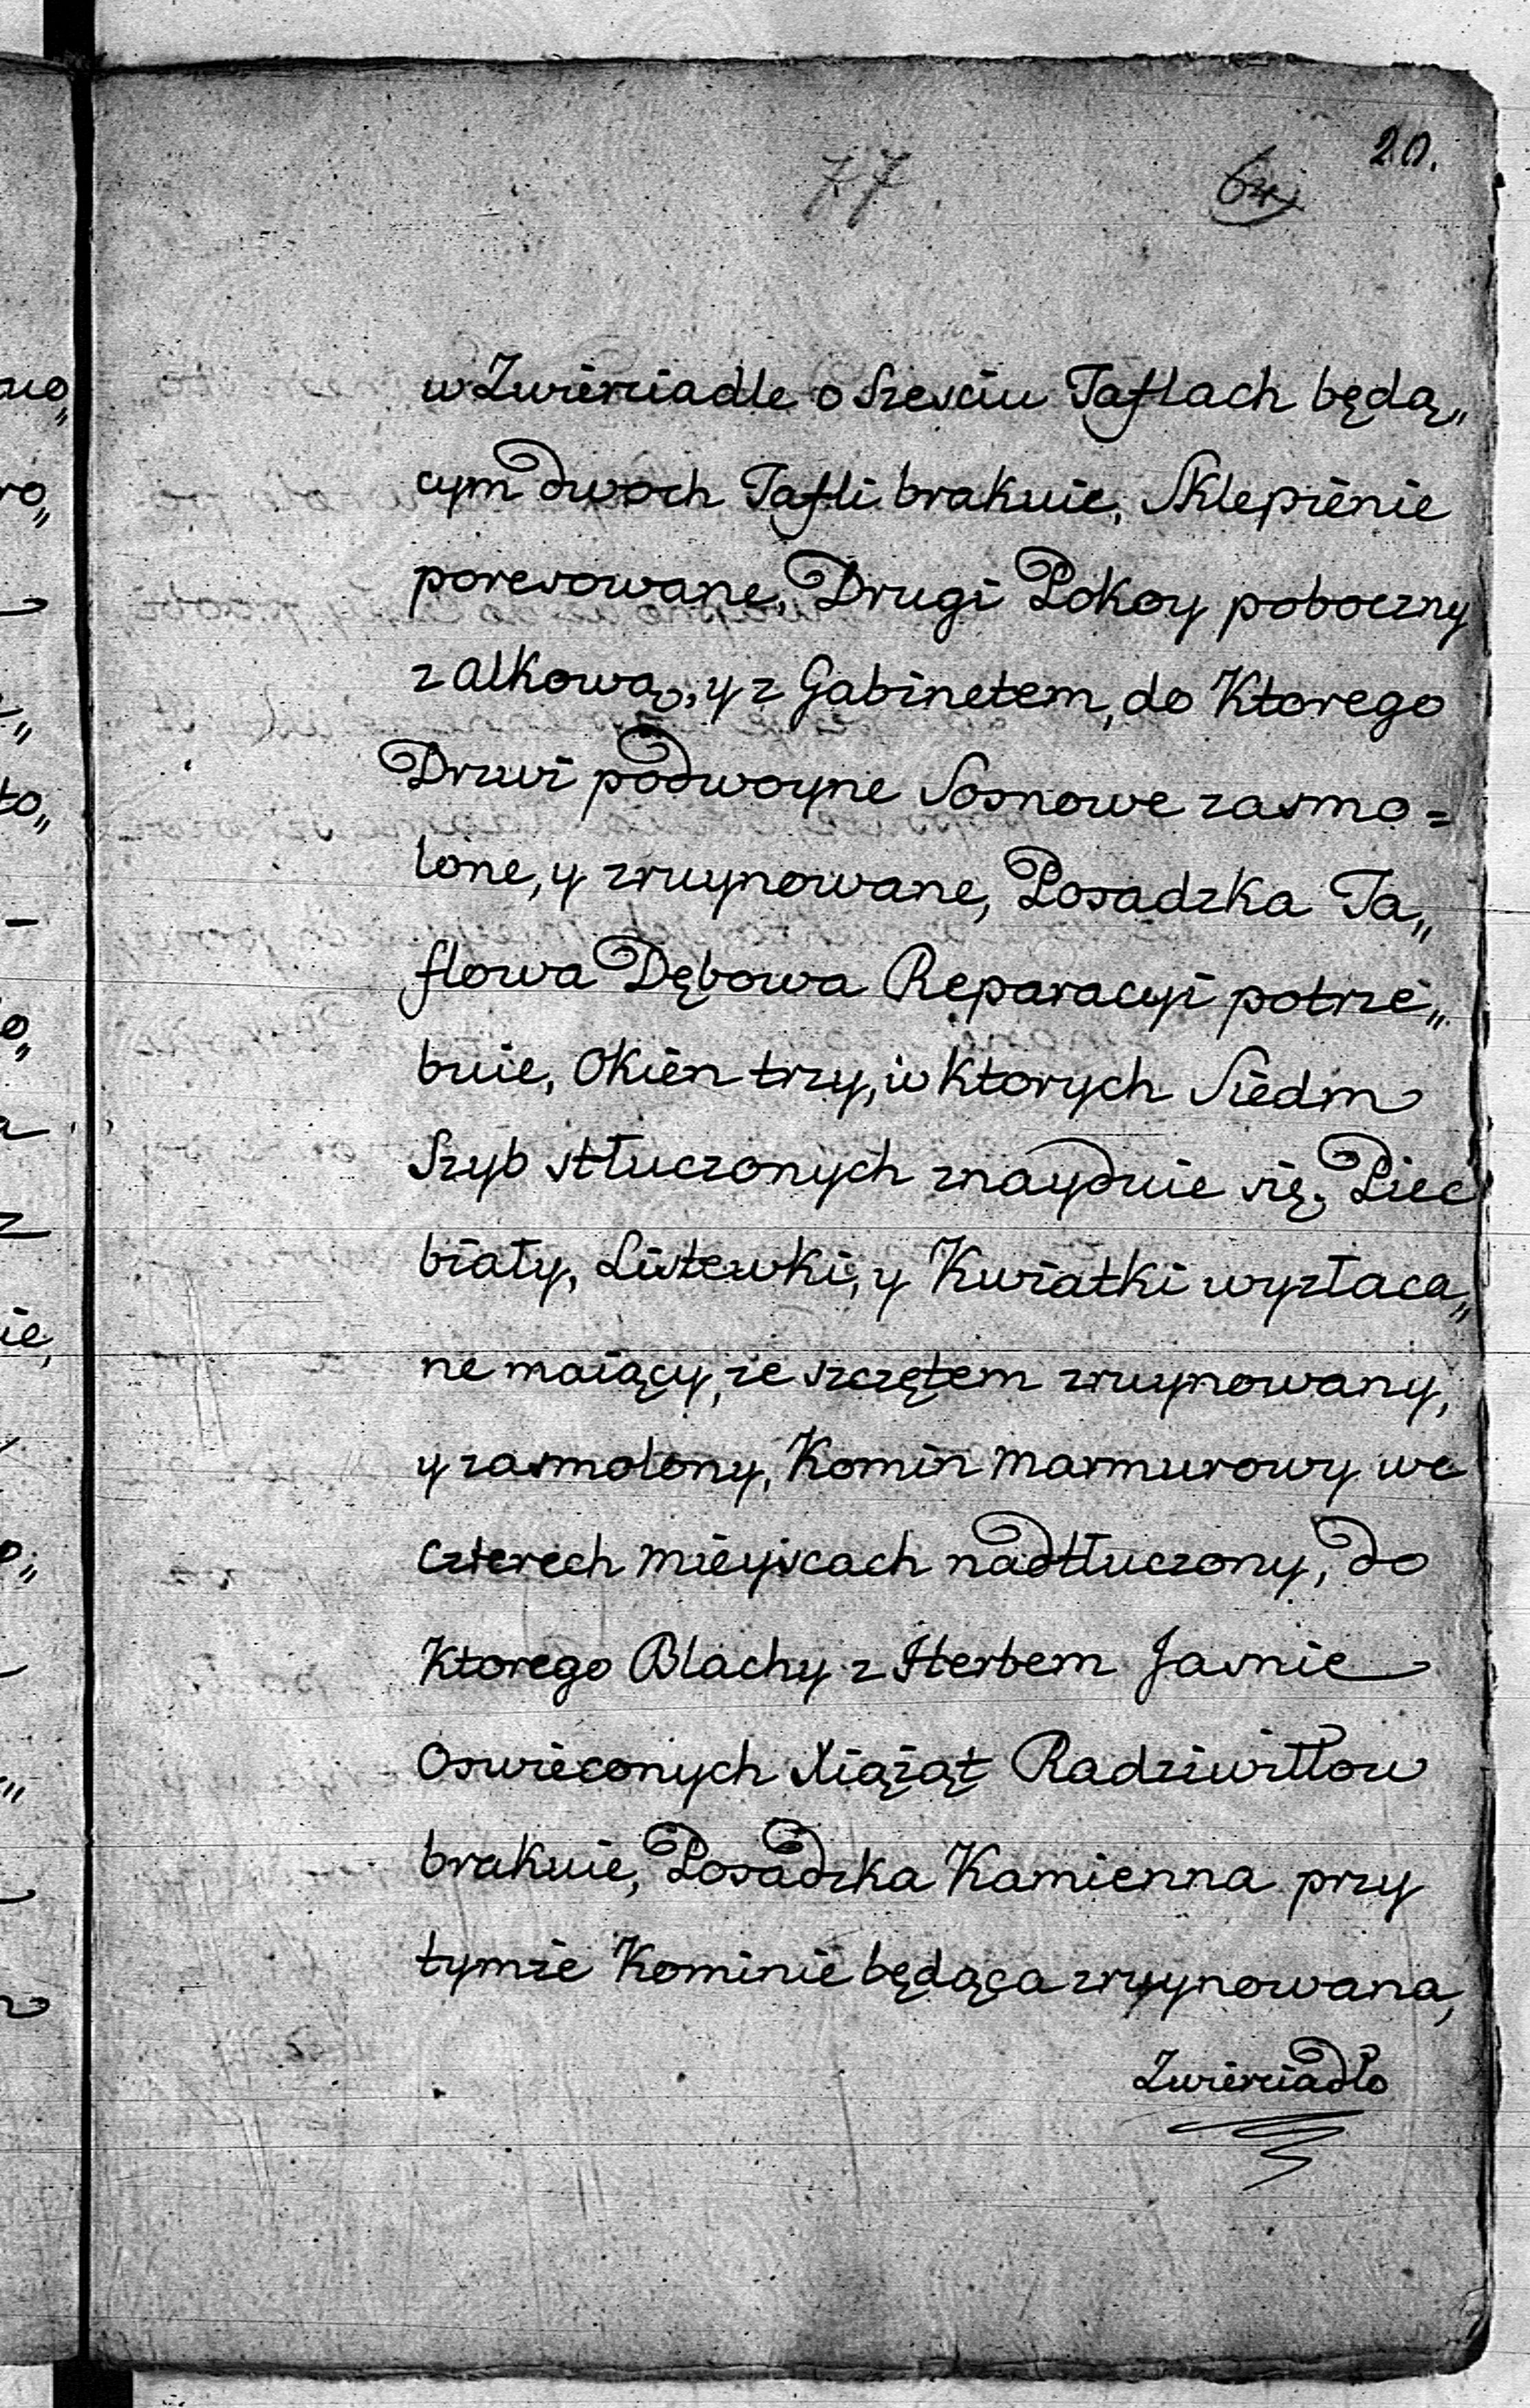 20.
77
w Zwierciadle o Szesciu Taflach będą„
cym dwoch Tafli brakuie, Sklepienie
poresowane, Drugi Pokoy poboczny
z Alkową, y z Gabinetem, do Ktorego
Drzwi podwoyne Sosnowe zasmo=
lone, y zruynowane, Posadzka Ta„
flowa Dębowa Reparacyi potrze„
buie, Okien trzy, w Ktorych Siedm
Szyb stłuczonych znayduie się, Piec
biały, Listewki, y Kwiatki wyzłaca„
ne maiący, ze szczętem zruynowany,
y zasmolony, Komin Marmurowy we
czterech mieyscach nadtłuczony, do
Ktorego Blachy z Herbem Jasnie
Oswieconych Xiążąt Radziwiłłow
brakuie, Posadzka Kamienna przy
tymże Kominie będąca zruynowana,
Zwierciadło